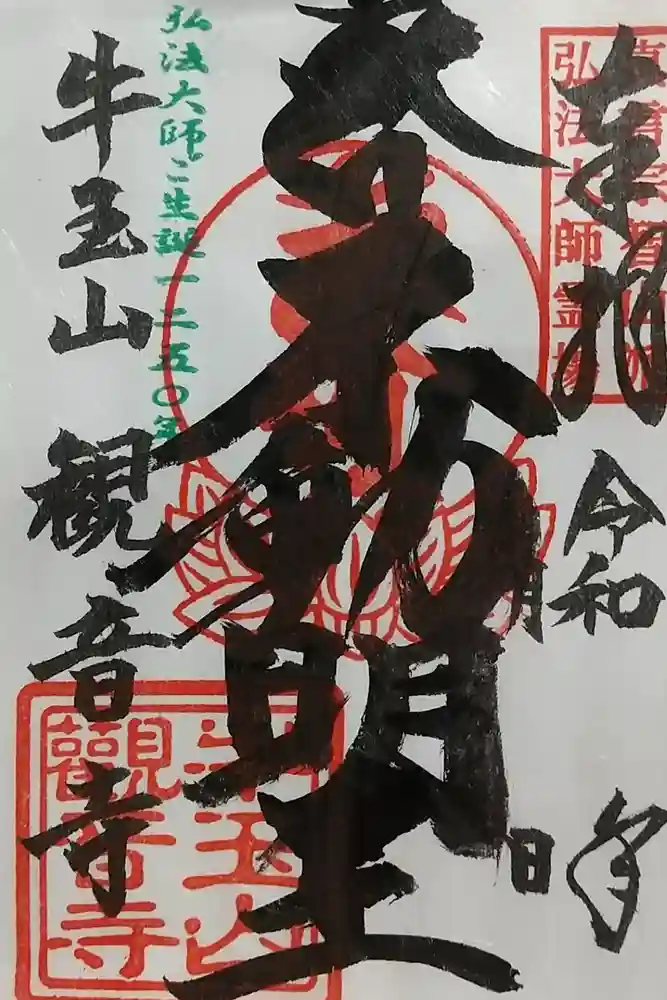 奉拝
真言宗智山派
弘法大師霊場
令和 年
月
日
不動明王
弘法大師ご生誕一二五〇年
牛玉山 観音寺
牛玉山
觀音寺